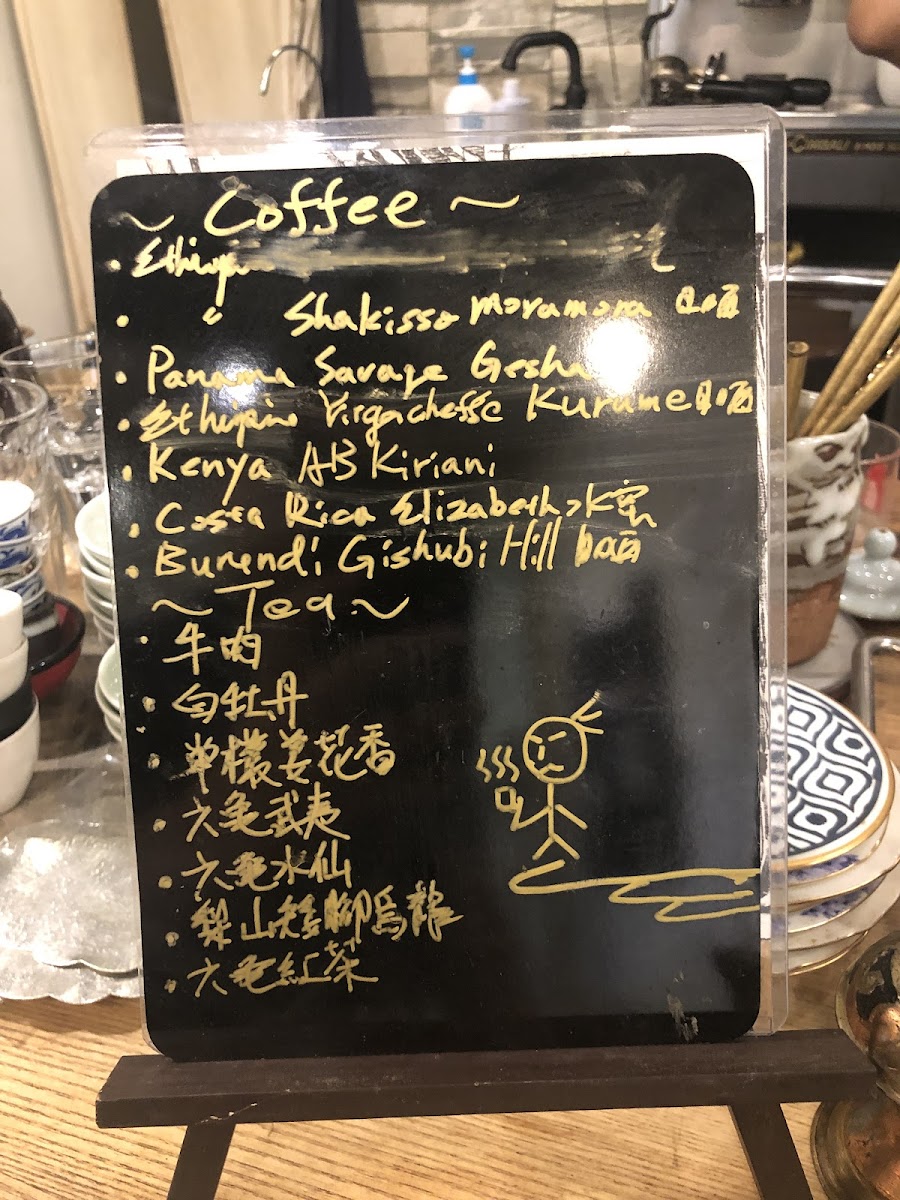 ~ Coffee ~
· Ethiopia
· " Shakisso Moramora 日晒
· Panama Savage Gesha
· Ethiopia Yirgacheffe Kurume 日晒
· Kenya AB Kiriani
· Costa Rica Elizabeth 水蜜
· Burundi Gishubi Hill 日晒
~ Tea ~
· 牛肉
· 白牡丹
· 單欉姜花香
· 六龜武夷
· 六龜水仙
· 梨山矮腳烏龍
· 六龜紅茶
CIMBALI